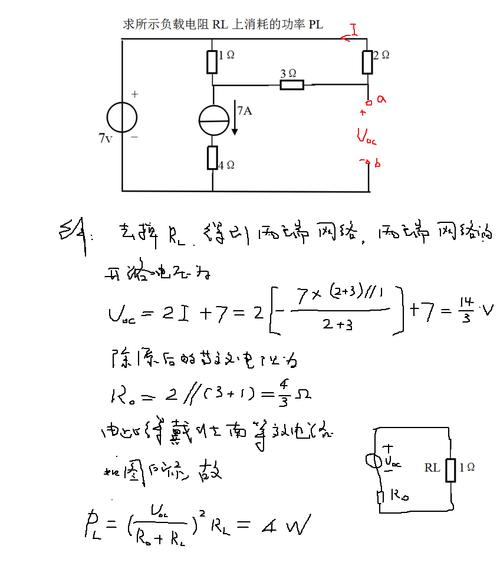 求所示负载电阻 RL 上消耗的功率 PL
I
1Ω
2Ω
3Ω
a
+
7A
+
7v
-
Uoc
4Ω
-b
解: 去掉 RL. 得到两端网络, 两端网络的
开路电压为
Uoc = 2I + 7 = 2[-7×(2+3)//1/2+3] + 7 = 14/3 V
除源后的等效电阻为
Ro = 2//(3+1) = 4/3 Ω
由此得戴维南等效电路
如图所示, 故
+
Uoc
-
RL
1Ω
Ro
PL = (Uoc/Ro + RL)² RL = 4 W